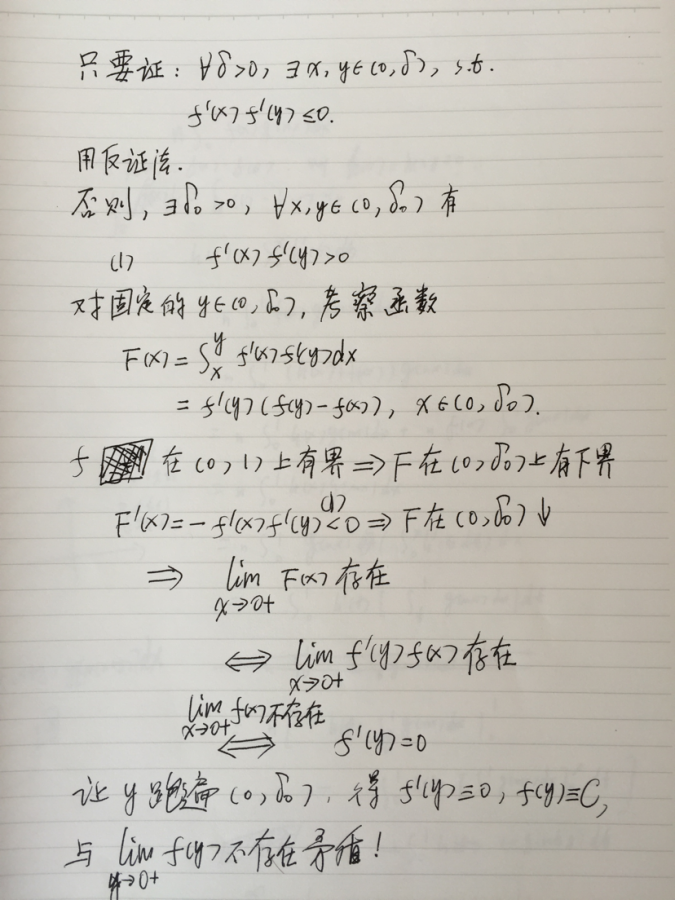 只要证: ∀δ>0, ∃x, y∈(0, δ), s.t.
f'(x) f'(y) ≤0.
用反证法.
否则, ∃δ₀>0, ∀x, y∈(0, δ₀) 有
(1) f'(x) f'(y) >0
对固定的 y∈(0, δ₀), 考察函数
F(x) = ∫_x^y f'(x) f'(y) dx
= f'(y) (f(y) - f(x)), x∈(0, δ₀).
f 在 (0, 1) 上有界 ⟹ F 在 (0, δ₀) 上有下界
F'(x) = - f'(x) f'(y) <^{(1)} 0 ⟹ F 在 (0, δ₀) ↓
⟹ lim_{x→0+} F(x) 存在
⟺ lim_{x→0+} f'(y) f(x) 存在
lim_{x→0+} f(x) 不存在
⟺ f'(y) = 0
让 y 跑遍 (0, δ₀), 得 f'(y) ≡0, f(y) ≡C,
与 lim_{y→0+} f(y) 不存在矛盾!